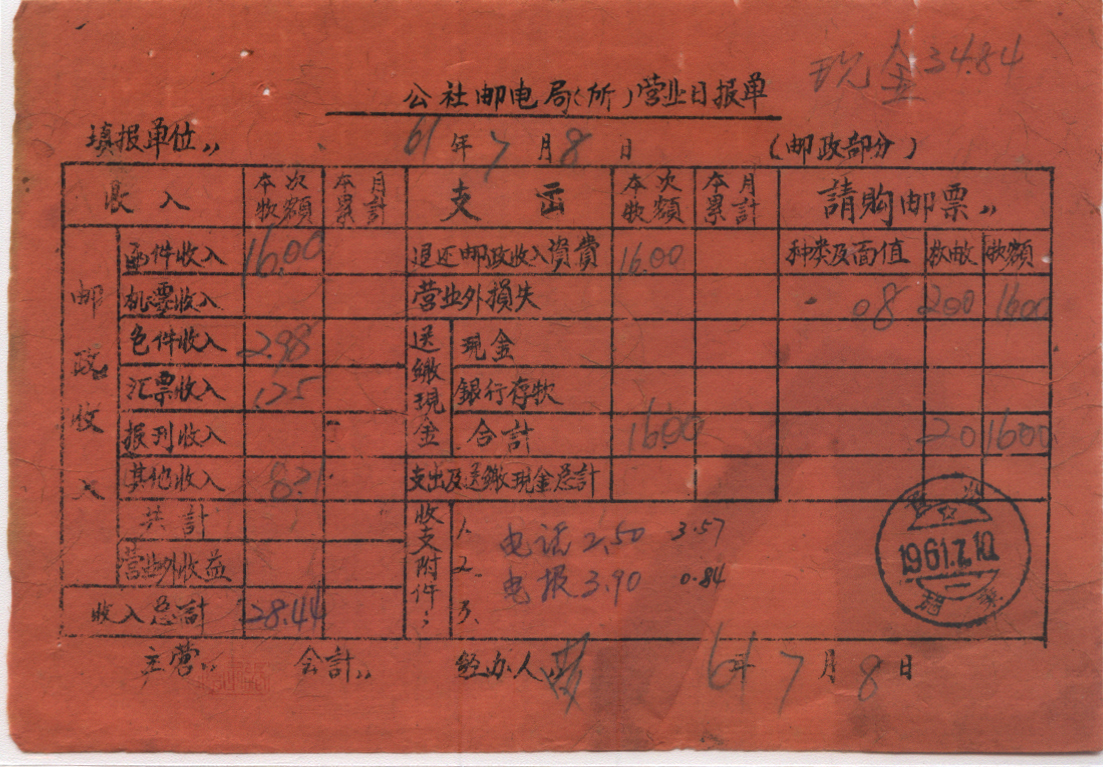 现金 34.84
公社邮电局(所)营业日报单
填报单位,,
61年7月8日
(邮政部分)
收入 本次收额 本月累計 支出 本次收额 本月累計 請购邮票,,
邮政收入
函件收入 16.00 退还邮政收入資費 16.00 种类及面值 枚数 款额
机票收入 营业外損失 .08 200 1600
包件收入 2.98 送繳現金 現金
汇票收入 1.25 銀行存款
报刊收入 合計 16.00 20 1600
其他收入 8.21 支出及送繳現金总計
共計 收支附件: 1. 电话 2.50 3.57
营业外收益 2. 电报 3.90 0.84
收入总計 28.44 3.
1961.7.10
主营,, 会計,, 经办人,, 61年7月8日